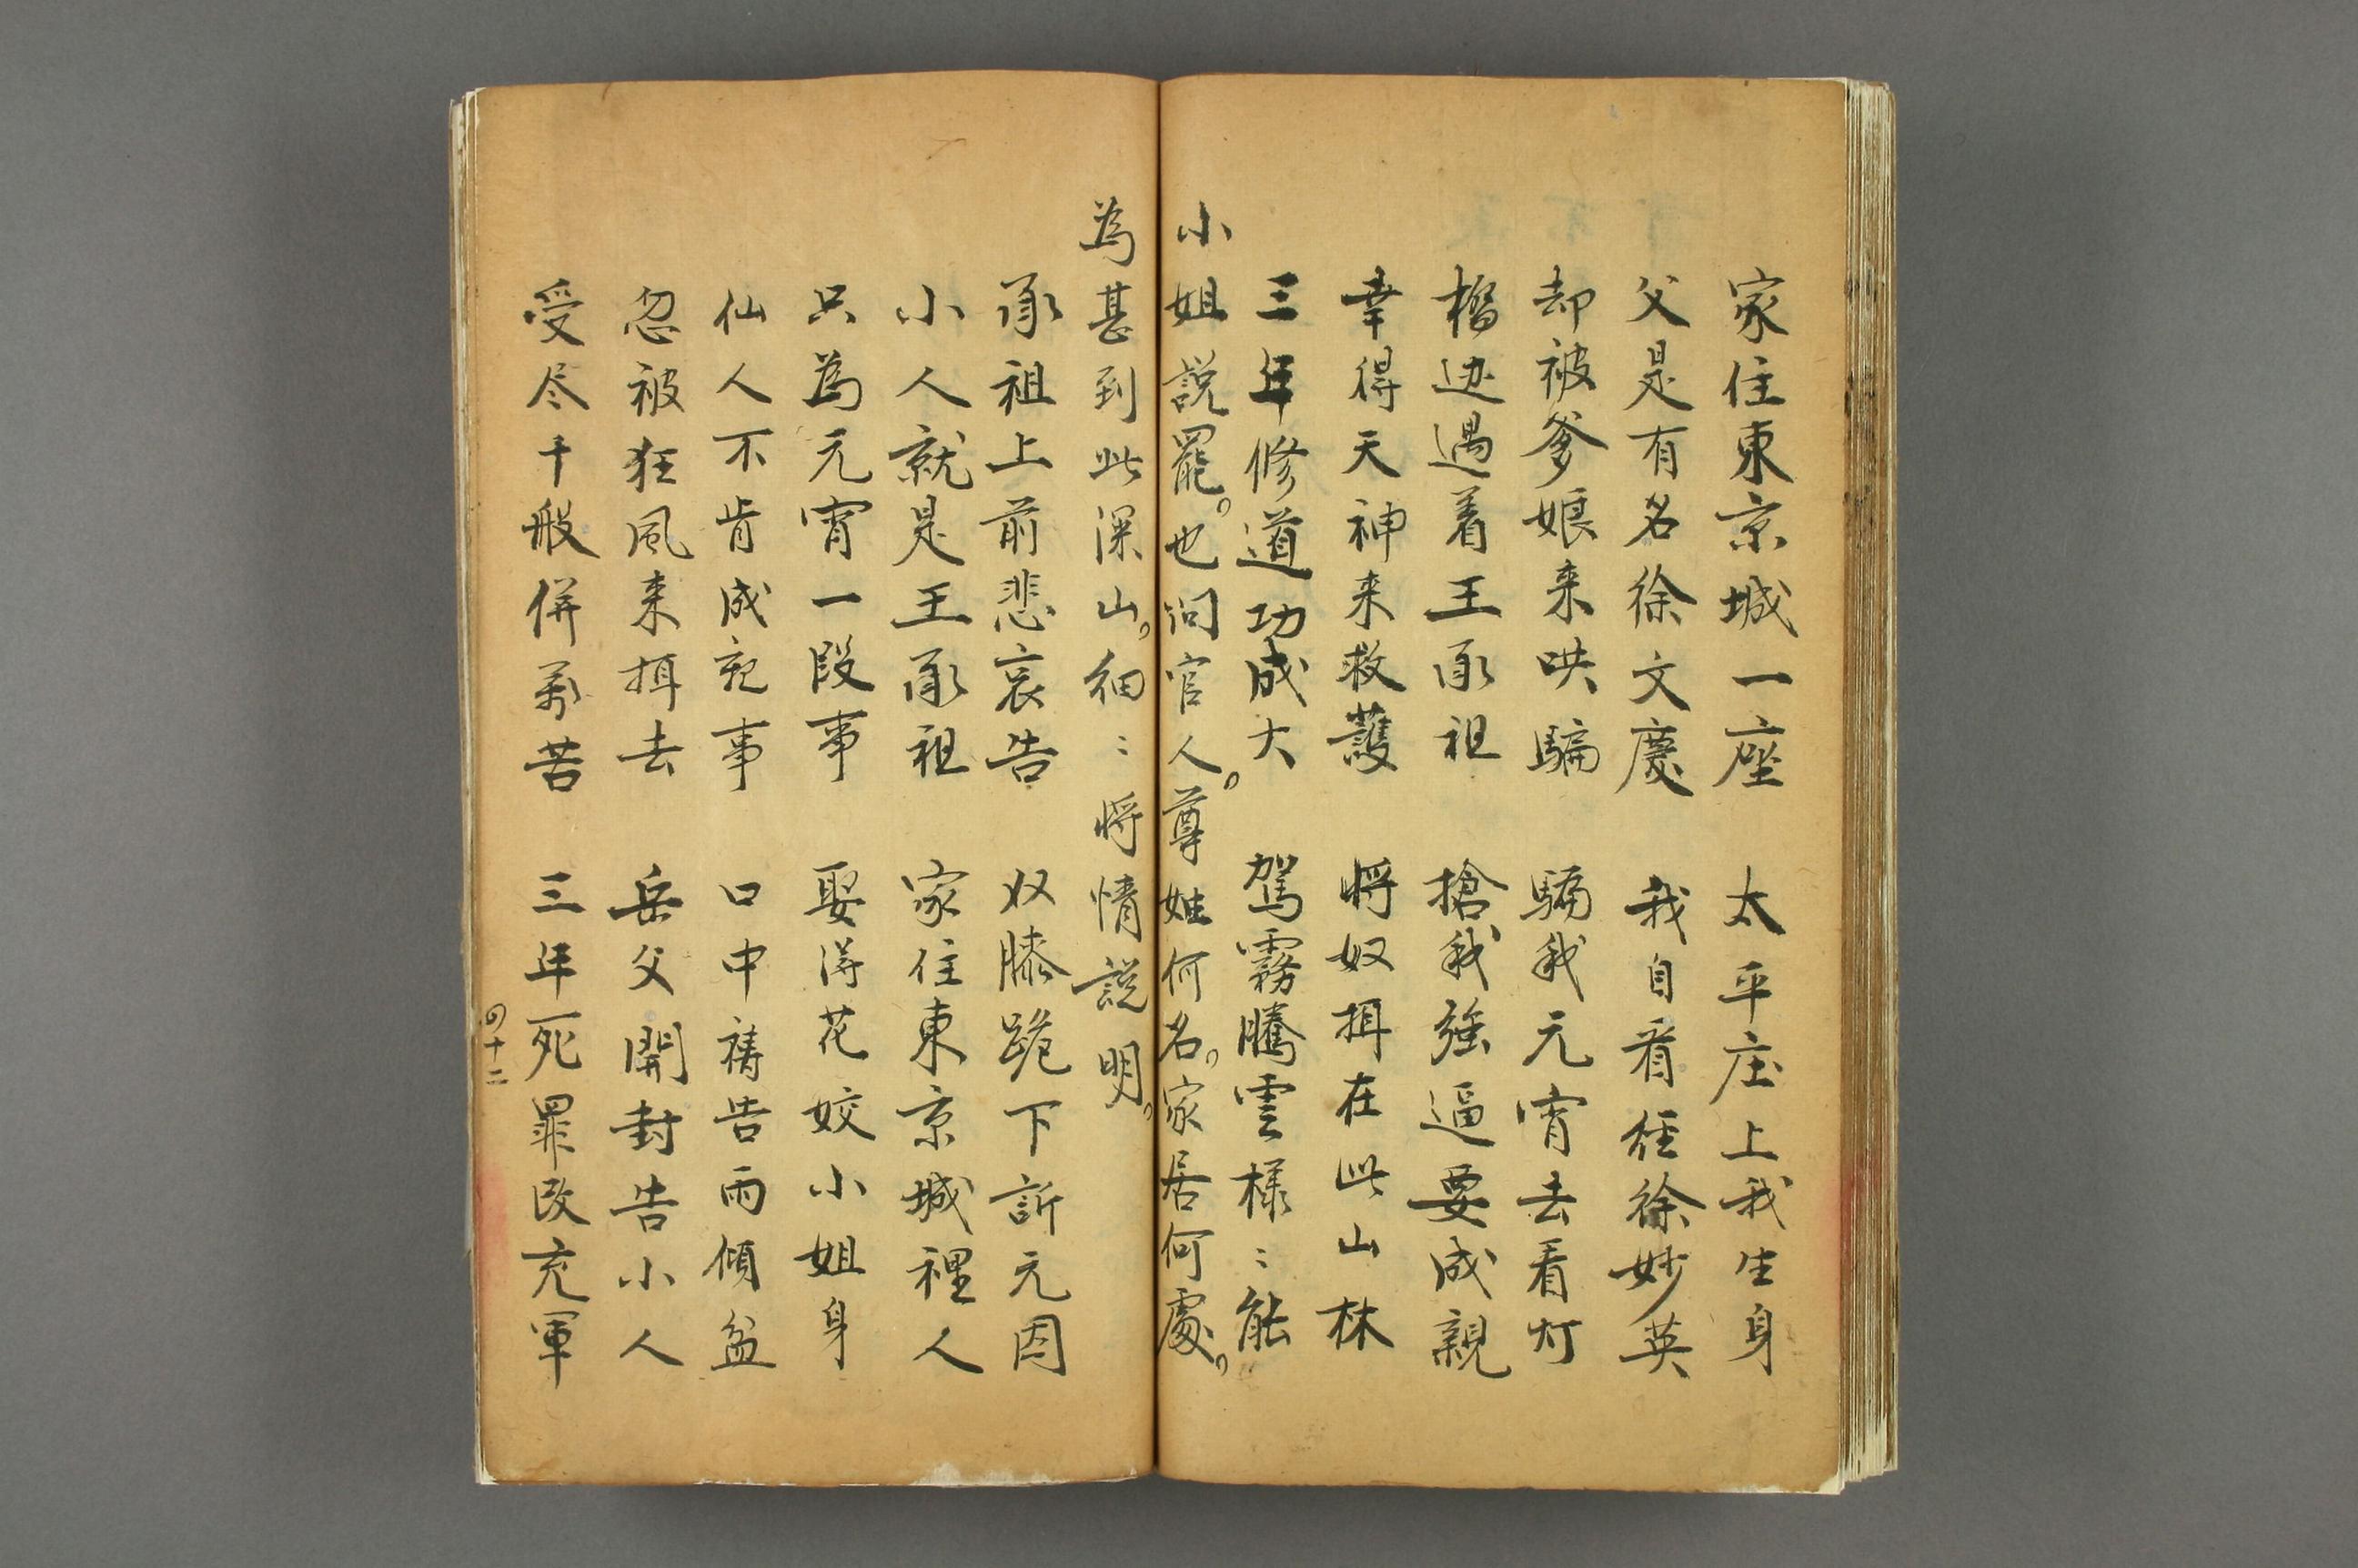 家住東京城一座　太平庄上我生身
父是有名徐文慶　我自看經徐妙英
却被爹娘来哄騙　騙我元宵去看灯
橋边遇着王承祖　搶我強逼要成親
幸得天神来救護　将奴揖在此山林
三年修道功成大　駕霧騰雲樣〻能
小姐説罷。也问官人。尊姓何名。家居何處。
為甚到此深山。細〻将情説明。
承祖上前悲哀告　双膝跪下訴元因
小人就是王承祖　家住東京城裡人
只為元宵一段事　娶得花姣小姐身
仙人不肯成親事　口中禱告雨傾盆
忽被狂風来揖去　岳父開封告小人
受尽千般併萬苦　三年死罪改充軍
四十二